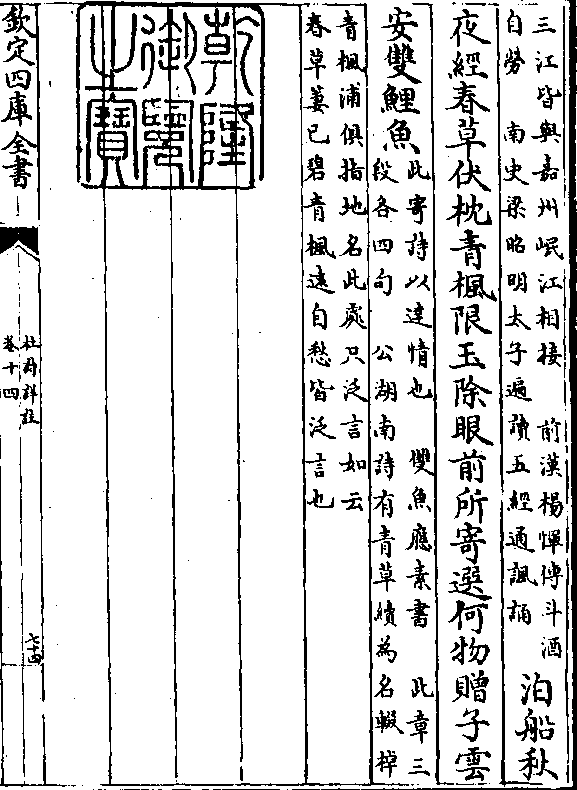 三江皆與嘉州岷江相接　前漢楊惲傳斗酒
自勞　南史梁昭明太子遍讀五經通諷誦
泊船秋
夜經春草伏枕青楓限玉除眼前所寄選何物贈子雲
安雙鯉魚
此寄詩以達情也　雙魚應素書　此章三
段各四句　公湖南詩有青草續為名輟棹
青楓浦俱指地名此處只泛言如云
春草萋已碧青楓遠自愁皆泛言也
乾隆
御覽
之寶
欽定四庫全書
杜詩詳註
卷十四
七十四